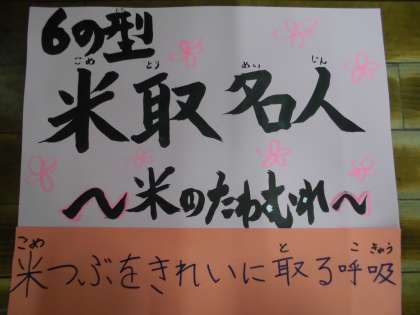 6の型
こめ とう めい じん
米取名人
～米のたわむれ～
こめ と こ きゅう
米つぶをきれいに取る呼吸